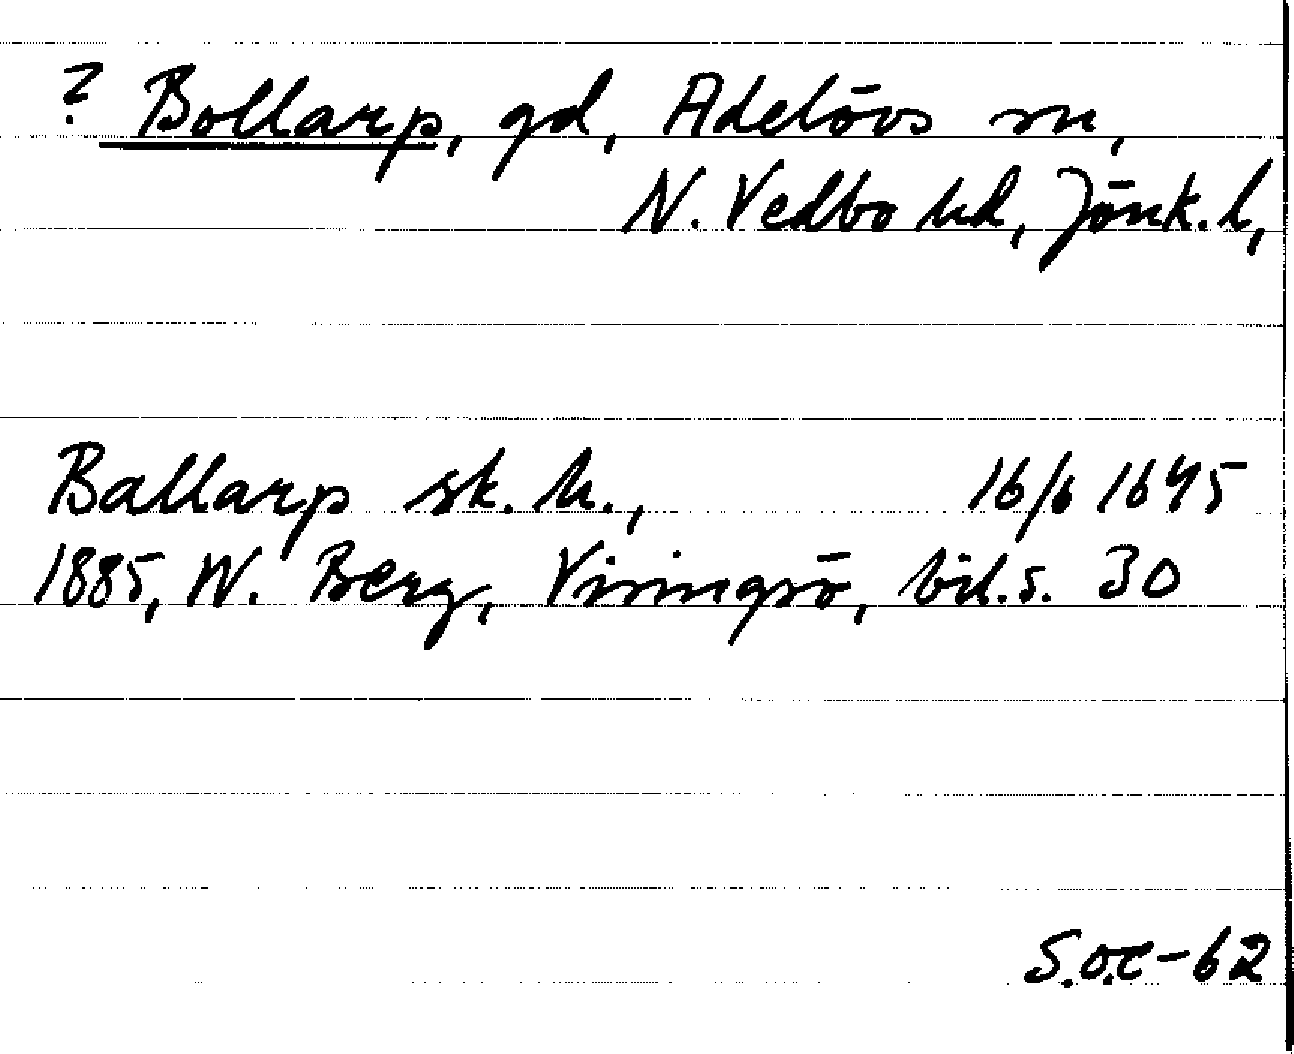 ? Bollarp, gd, Adelövs sn,
N. Vedbo hd, Jönk. l,
Ballarp sk. h., 16/6 1645
1885, W. Berg, Visingsö, bil. s. 30
S.o.c-62